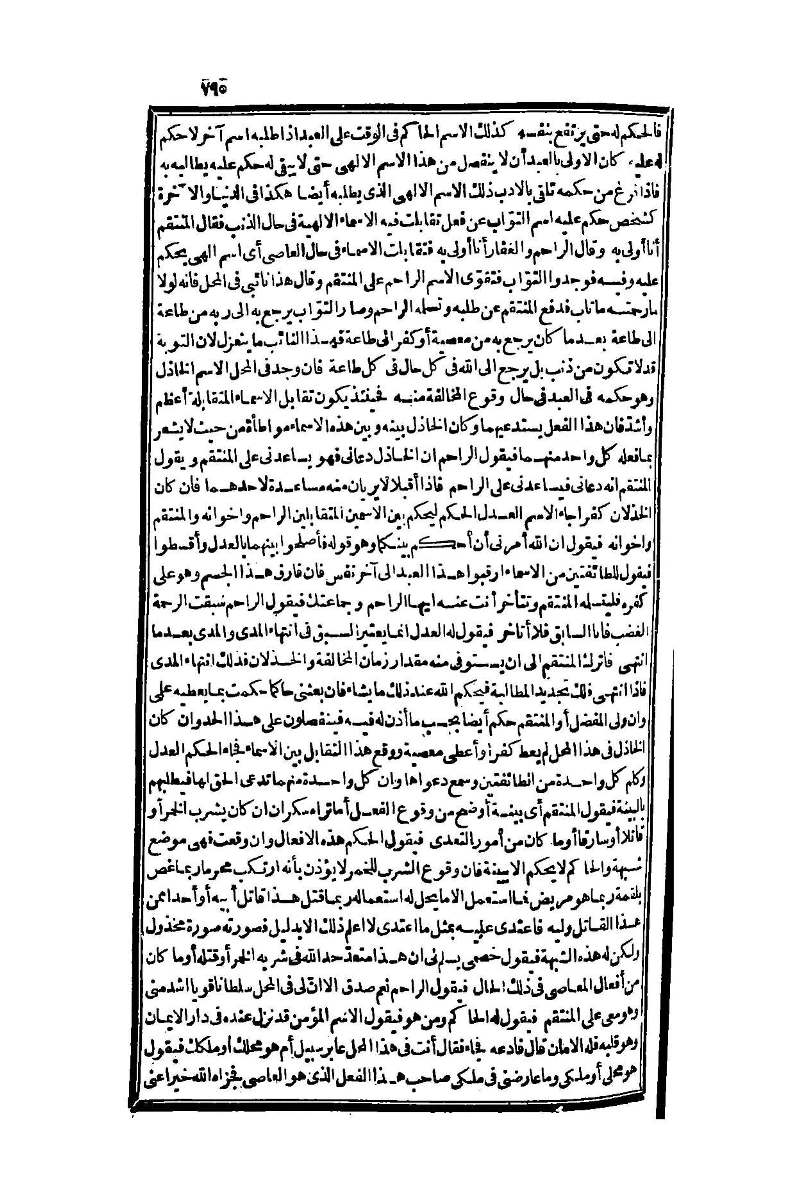 ٧٩٥
فالحكم له حتى يرتفع بنفسه كذلك الاسم الحاكم فى الوقت على العبد اذا طلبه اسم آخر لا حكم
له عليه كان الاولى بالعبد أن لا ينفصل من هذا الاسم الالهى حتى لا يبقى له حكم عليه يطالبه به
فاذا فرغ من حكمه تلقى بالادب ذلك الاسم الالهى الذى يطلبه أيضا هكذا فى الدنيا والآخرة
كشخص حكم عليه اسم التواب عن فعل تقابلت فيه الاسماء الالهية فى حال الذنب فقال المنتقم
أنا أولى به وقال الراحم والغفار أنا أولى به فتقابلت الاسماء فى حال العاصى أى اسم الهى يحكم
عليه وفيه فوجدوا التواب فتقوى الاسم الراحم على المنتقم وقال هذا نائبى فى المحل فانه لولا
ما رحمته ما تاب فدفع المنتقم عن طلبه وتسلمه الراحم وصار التواب يرجع به الى ربه من طاعة
الى طاعة بعدما كان يرجع به من معصية أو كفر الى طاعة فهذا التائب ما ينعزل لان التوبة
قد لا تكون من ذنب بل يرجع الى الله فى كل حال فى كل طاعة فان وجد فى المحل الاسم الخاذل
وهو حكمه فى العبد فى حال وقوع المخالفة منه فحينئذ يكون تقابل الاسماء المتقابلة أعظم
وأشد فان هذا الفعل يستدعيهما وكان الخاذل بينه وبين هذه الاسماء مواطأة من حيث لا يشعر
بما فعله كل واحد منهما فيقول الراحم ان الخاذل دعانى فهو يساعدنى على المنتقم ويقول
المنتقم انه دعانى فيساعدنى على الراحم فاذا أقبلا لا يريان منه مساعدة لاحدهما فان كان
الخذلان كفرا جاء الاسم العدل الحكم ليحكم بين الاسمين المتقابلين الراحم واخوانه والمنتقم
واخوانه فيقول ان الله أمرنى أن أحكم بينكما وهو قوله فأصلحوا بينهما بالعدل وأقسطوا
فيقول للطائفتين من الاسماء ارقبوا هذا العبد الى آخر نفس فان فارق هذا الجسم وهو على
كفره فليتسلمه المنتقم وتتأخر أنت عنه ايها الراحم وجماعتك فيقول الراحم سبقت الرحمة
الغضب فانا السابق فلا أتاخر فيقول له العدل انما يعتبر السبق فى انتهاء المدى والمدى بعد ما
انتهى فاترك المنتقم الى ان يستوفى منه مقدار زمان المخالفة والخذلان فذلك انتهاء المدى
فاذا انتهى فلك تجديد المطالبة فيحكم الله عند ذلك ما يشاء فان بعثنى حاكما حكمت بما يعطيه على
وان ولى المفضل أو المنتقم حكم أيضا بحسب ما أذن له فيه فينفصلون على هذا الحد وان كان
الخاذل فى هذا المحل لم يعط كفرا وأعطى معصية ووقع هذا التقابل بين الاسماء فجاء الحكم العدل
وكلم كل واحدة من الطائفتين وسمع دعواها وان كل واحدة منهما تدعى الحق لها فيطلبهم
بالبينة فيقول المنتقم أى بينة أوضح من وقوع الفعل أما تراه سكران ان كان يشرب الخمر أو
قاتلا أو سارقا أو ما كان من أمور التعدى فيقول الحكم هذه الافعال وان وقعت فهى موضع
شبهة والحاكم لا يحكم الا ببينة فان وقوع الشرب للخمر لا يؤذن بأنه ارتكب محرما ربما غص
بلقمة ربما هو مريض فما استعمل الا ما يحل له استعماله ربما قتل هذا قاتل أبيه أو أحدا ممن
هذا القاتل وليه فاعتدى عليه بمثل ما اعتدى لا اعلم ذلك الا بدليل فصورته صورة مخذول
ولكن له هذه الشبهة فيقول خصمى يسلم لى ان هذا متعد حد الله فى شربه الخمر أو قتله أو ما كان
من أفعال المعاصى فى ذلك الحال فيقول الراحم نعم صدق الا ان لى فى المحل سلطانا قويا اشد منى
وهو معى على المنتقم فيقول له الحاكم ومن هو فيقول الاسم المؤمن قد نزل عنده فى دار الايمان
وهو قلبه فله الامان قال فادعه فجاء فقال أنت فى هذا المحل عابر سبيل أم هو محلك أو ملكك فيقول
هو محلى أو ملكى وما عارضنى فى ملكى صاحب هذا الفعل الذى هو العاصى فجزاه الله خيرا عنى